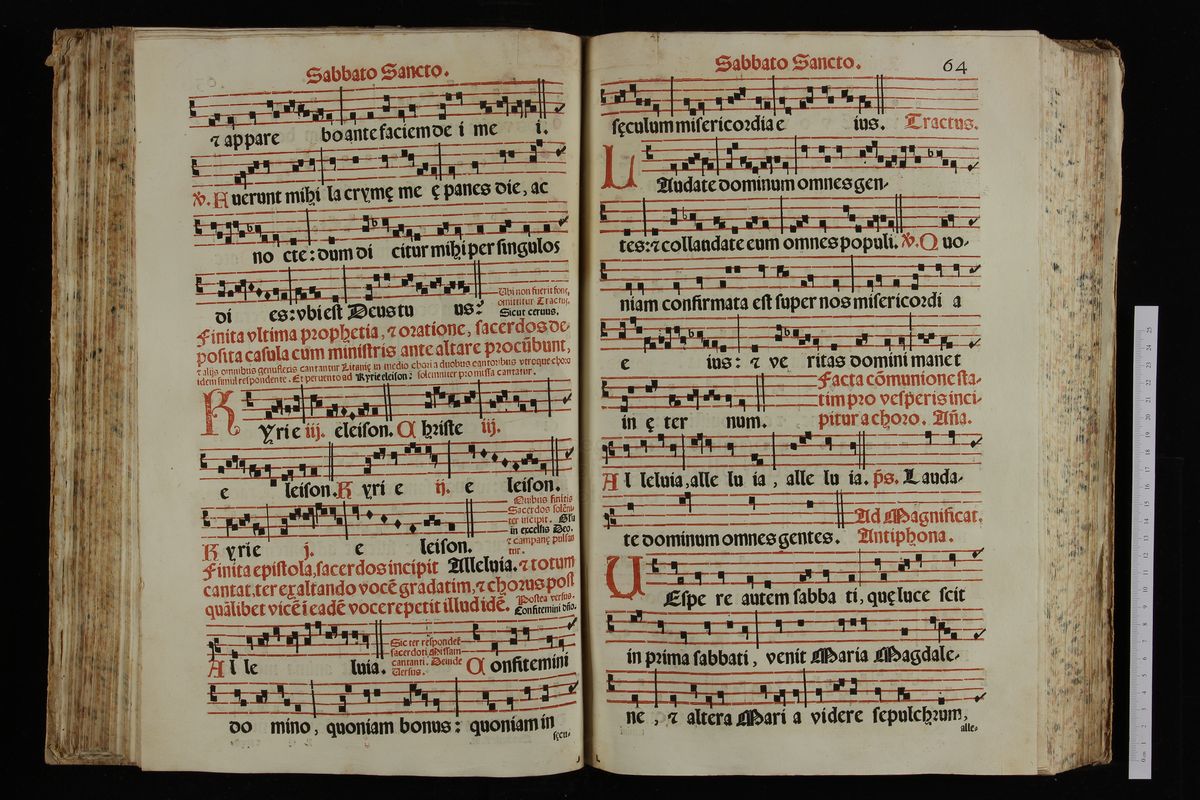 Sabbato Sancto.
⁊ appare bo ante faciem de i me i.
℣. Fuerunt mihi la crymę me ę panes die, ac
no cte: dum di citur mihi per singulos
di es: vbi est Deus tu us?
Vbi non fuerit fons,
omittitur Tractus.
Sicut ceruus.
Finita vltima prophetia, ⁊ oratione, sacerdos de-
posita casula cum ministris ante altare procūbunt,
⁊ alijs omnibus genuflexis cantantur Litanię in medio chori a duobus cantoribus vtroque choro
idem simul respondente. Et peruento ad Kyrie eleison: solemniter pro missa cantatur.
Kyrie iij. eleison. Christe iij.
e leison. Kyri e ij. e leison.
Kyrie j. e leison.
Quibus finitis
Sacerdos solēni-
ter incipit. Glia
in excelsis Deo.
⁊ campanę pulsan
tur.
Finita epistola, sacerdos incipit Alleluia. ⁊ totum
cantat, ter exaltando vocē gradatim, ⁊ chorus post
quālibet vicē i eadē voce repetit illud idē.
Postea versus.
Confitemini dño.
Al le luia.
Sic ter respondet
sacerdoti Missam
cantanti. Deinde
Versus.
Confitemini
do mino, quoniam bonus: quoniam in
sęcu-
Sabbato Sancto.
64
sęculum misericordia e ius. Tractus.
LAudate dominum omnes gen-
tes: ⁊ collaudate eum omnes populi. ℣. Quo-
niam confirmata est super nos misericordi a
e ius: ⁊ ve ritas domini manet
in ę ter num.
Facta cōmunione sta-
tim pro vesperis inci-
pitur a choro. Aña.
Al leluia, alle lu ia, alle lu ia. p̄s. Lauda-
te dominum omnes gentes.
Ad Magnificat.
Antiphona.
VEspe re autem sabba ti, quę luce scit
in prima sabbati, venit Maria Magdale-
ne, ⁊ altera Mari a videre sepulchrum,
alle-